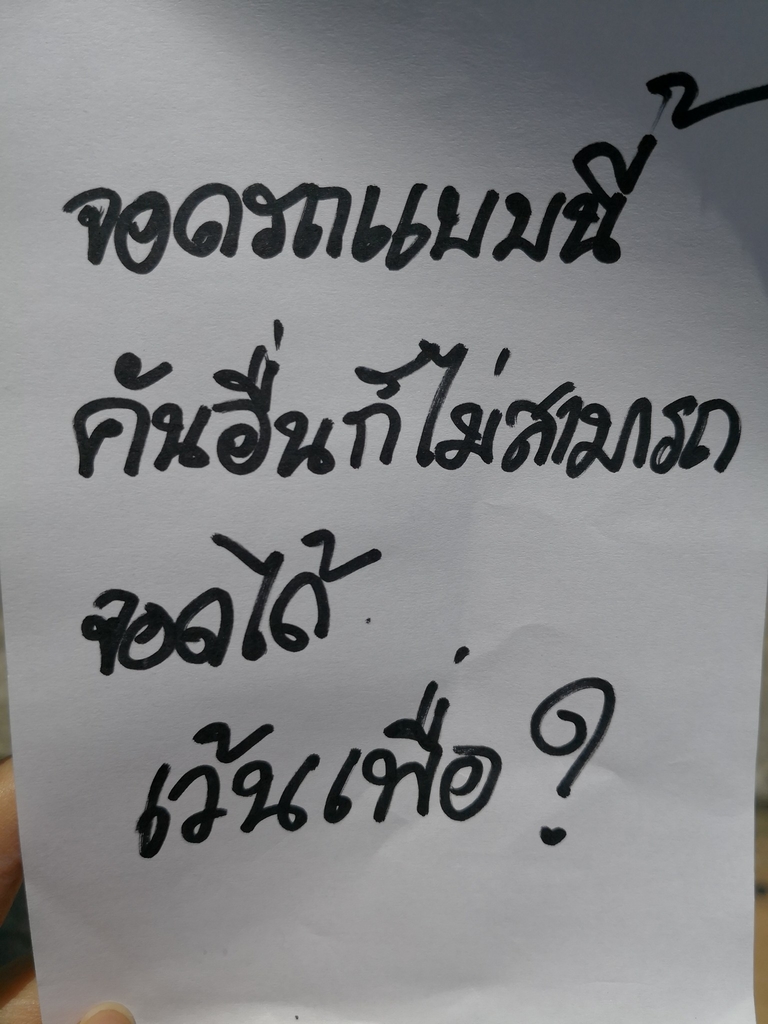 จอดรถแบบนี้
คันอื่นก็ไม่สามารถ
จอดได้
เว้นเพื่อ?